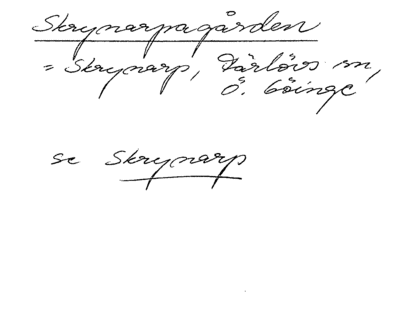 Skrynarpagården
= Skrynarp, Färlövs sn,
Ö. Göinge
se Skrynarp